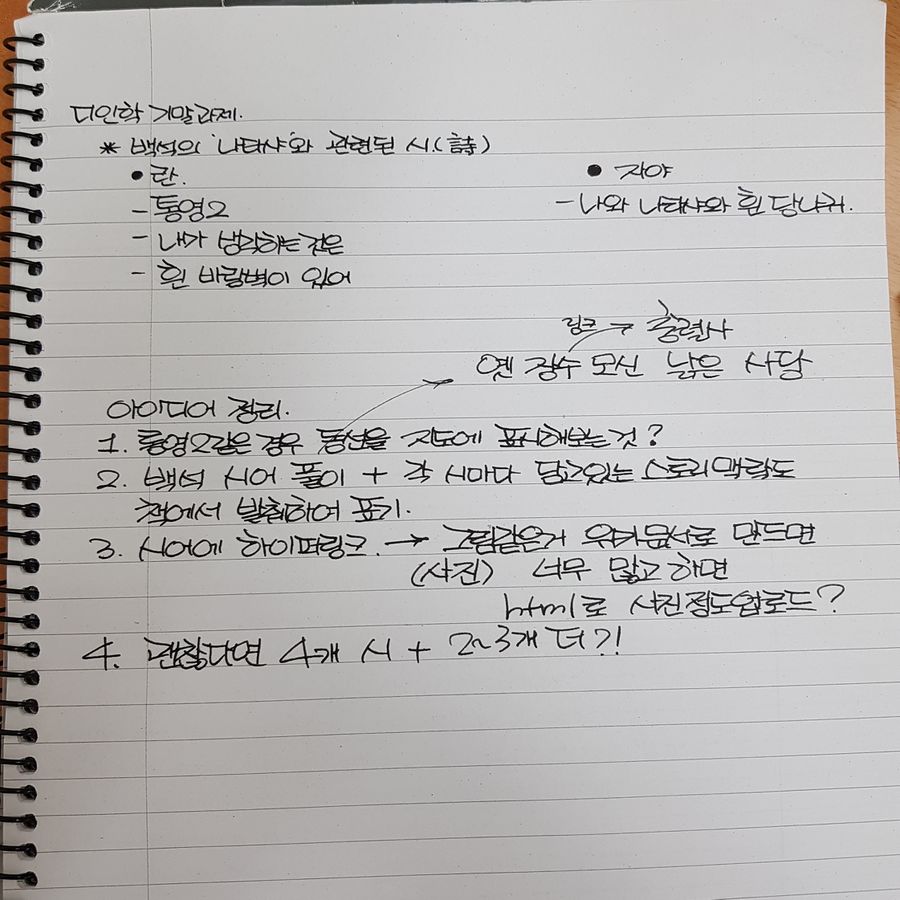 디인학 기말과제.
* 백석의 '나타샤'와 관련된 시.(詩)
• 란.
- 통영2
- 내가 생각하는 것은
- 흰 바람벽이 있어
• 자야
- 나와 나타샤와 흰 당나귀.
링크 → 충렬사
옛 장수 모신 낡은 사당
아이디어 정리.
1. 통영2같은 경우 동선을 지도에 표시해보는 것?
2. 백석 시어 풀이 + 각 시마다 담고있는 스토리맥락도
책에서 발췌하여 표기.
3. 시어에 하이퍼링크. → 그림같은거 위키문서로 만드면
(사진) 너무 많고 하면
html로 사진정도업로드?
4. 괜찮다면 4개 시 + 2~3개 더?!